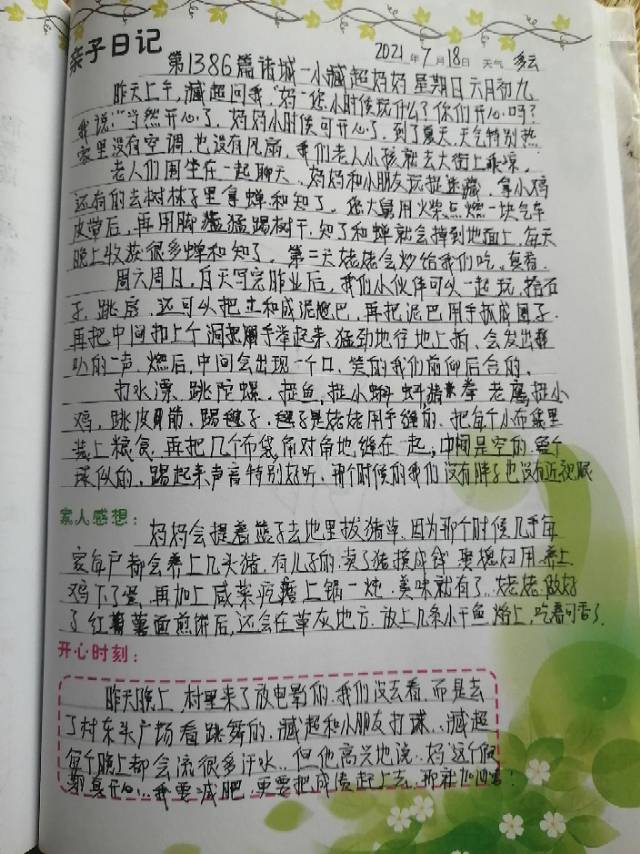 亲子日记
2021年7月18日 天气 多云
第1386篇诸城一小臧超妈妈 星期日六月初九
昨天上午,臧超问我:"妈"您小时候玩什么?你们开心吗?
我说:"当然开心了,妈妈小时候可开心了,到了夏天,天气特别热
家里没有空调,也没有风扇,我们老人小孩就去大街上乘凉。
老人们围坐在一起聊天,妈妈和小朋友玩捉迷藏,拿小鸡
还有的去树林子里拿蝉和知了。您大舅用火柴点燃一块汽车
皮带后,再用脚猛猛踢树干,知了和蝉就会掉到地面上,每天
晚上收获很多蝉和知了。第二天姥姥会炒给我们吃。真香
周六周日,白天写完作业后,我们小伙伴可以一起玩,拾石
子,跳房,还可以把土和成泥巴,再把泥巴用手抓成团子.
再把中间扣上个洞把用手举起来,猛劲地往地上掊,会发出
叭的一声,燃后,中间会出现一个口,笑的我们前仰后合的。
打水漂、跳陀螺,捉鱼,捉小蝌蚪 拳 老鹰捉小
鸡,跳皮筋,踢毽子.毽子是姥姥用手缝的,把每个小布袋里
装上粮食,再把几个布袋角对角地缝在一起,中间是空的,
似的,踢起来声音特别好听,那个时候的我们没有胖子也没有近视眼
家人感想:
妈妈会提着篮子去地里拔猪草,因为那个时候几乎每
家每户都会养上几头猪,有儿子的,卖了猪换成钱 娶媳妇用,养上
鸡下了蛋,再加上咸菜疙瘩上锅一炖,美味就有了,姥姥做好
了红薯面煎饼后,还会在草灰地方,放上几条小干鱼焰上,吃着可香了.
开心时刻:
昨天晚上,村里来了放电影的,我们没去看,而是去
了村东头广场看跳舞的,臧超和小朋友打球..臧超
每个晚上都会流很多汗水..但他高兴地说:妈这个假
期真开心..我要减肥,更要把成绩赶上去,那就加油吧!